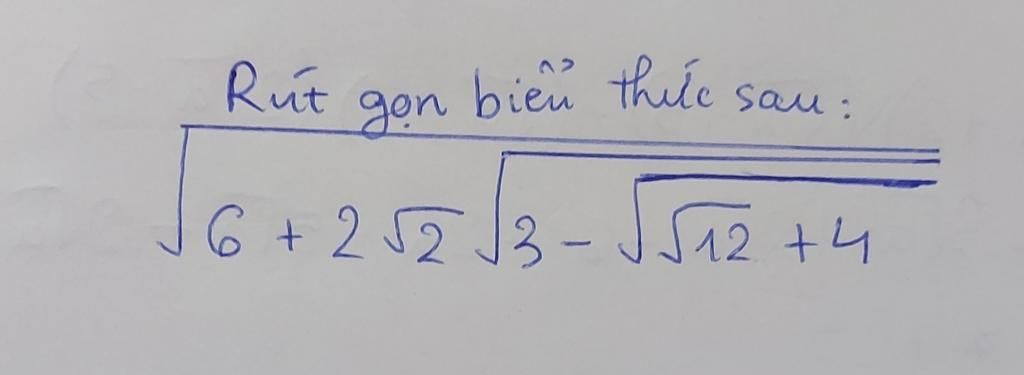 Rút gọn biểu thức sau:
√(6 + 2√2 √(3 - √(√12 + 4)))